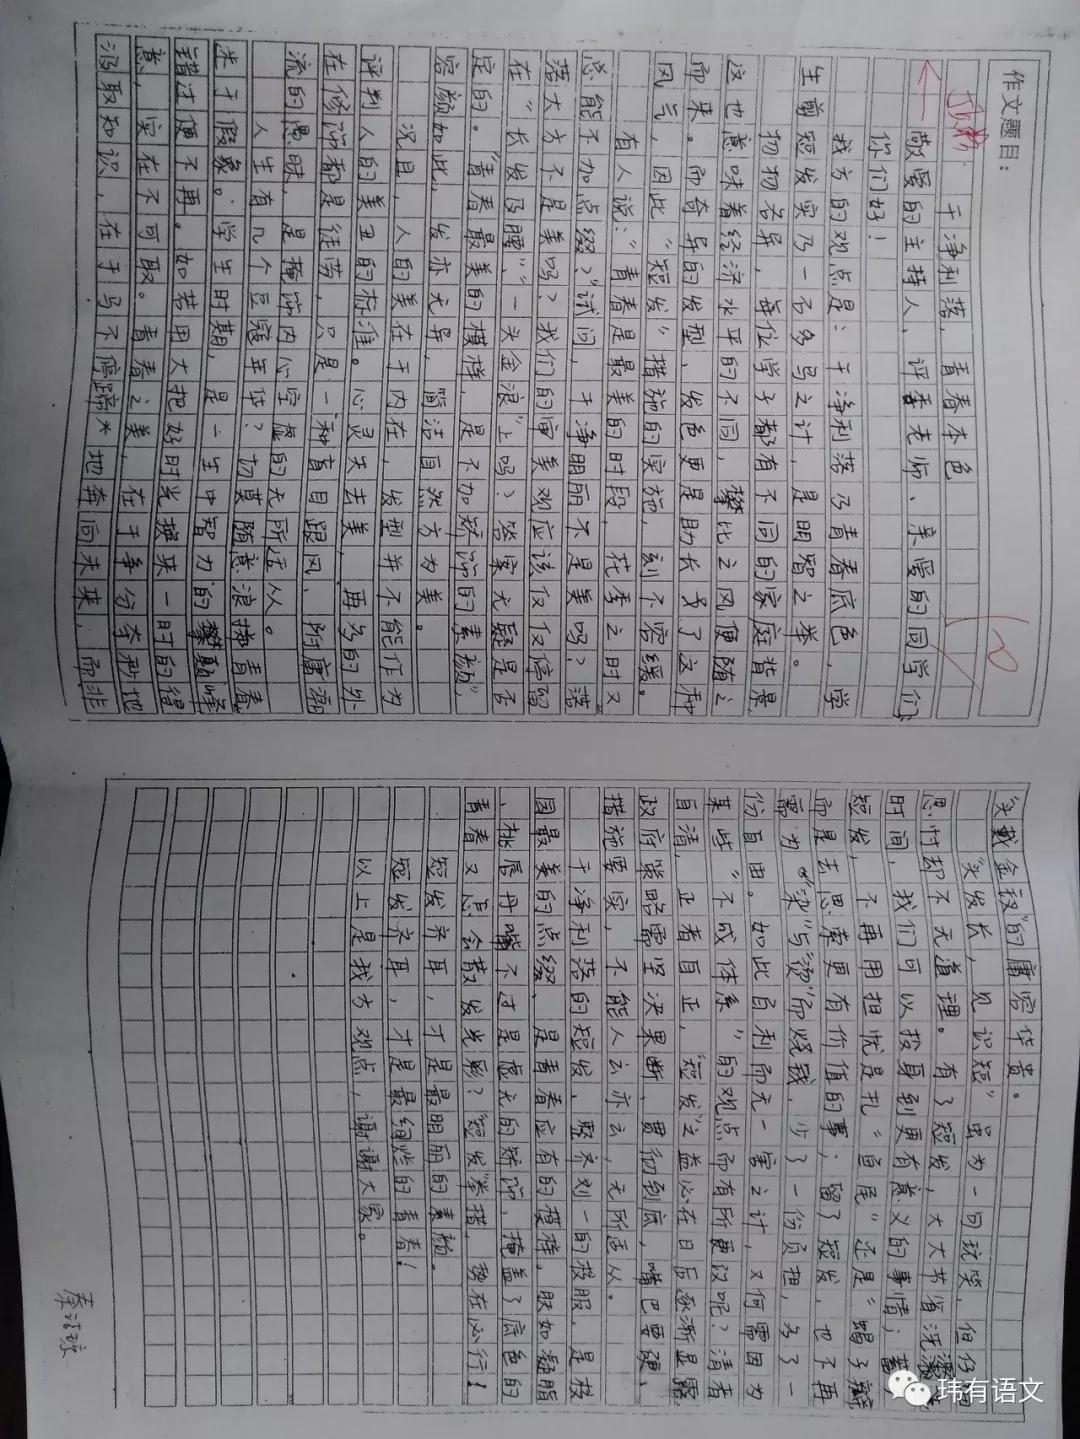 作文题目：
干净利落，青春本色
敬爱的主持人、评委老师、亲爱的同学们
你们好！
我方的观点是：干净利落乃青春底色，学
生剪短发实乃一石多鸟之计，是明智之举。
物物各异，每位学子都有不同的家庭背景
这也意味着经济水平的不同，攀比之风便随之
而来。而奇异的发型、发色更是助长予了这种
风气，因此“短发”措施的实施，刻不容缓。
有人说：“青春是最美的时段，花季之时又
怎能不加点缀？”试问，干净明丽不是美吗？落
落大方不是美吗？我们的审美观应该仅仅停留
在“长发及腰”、“一头金浪”上吗？答案无疑是否
定的。“青春最美的模样，是不加矫饰的素颜”，
容颜如此，发亦无异，简洁自然方为美。
况且，人的美在于内在，发型并不能作为
评判人的美丑的标准。心灵失去美，再多的外
在修饰都是徒劳，只是一种盲目跟风、附庸潮
流的愚昧，是掩饰内心空虚的无所适从。
人生有几个豆蔻年华？切莫随意浪掷青春
于假象。学生时期，是一生中智力的攀巅峰
错过便不再。如若用大把好时光换来一时的得
意，实在不可取。青春之美，在于争分夺秒地
汲取知识，在于马不停蹄地奔向未来，而非
“头戴金钗”的庸容华贵。
“头发长，见识短”虽为一句玩笑，但仔细
思忖却不无道理。有了短发，大大节省洗漱
时间，我们可以投身到更有意义的事情；剪
短发，不再用担忧是扎“鱼尾”还是“蝎子辫”
而是去思索更有价值的事；留了短发，也不再
需为“染”与“烫”而烧钱，少了一份负担，多了一
份自由。如此百利而无一害之计，又何需因为
某些“不成体系”的观点而有所更改呢？清者
自清，正者自正，“短发”之益必在日后逐渐显露
政府策略需坚决果断、贯彻到底，嘴巴要硬、
措施要实，不能人云亦云，无所适从。
干净利落的短发、整齐划一的校服，是校
园最美的点缀，是青春应有的模样。肤如凝脂
、桃唇丹嘴不过是虚无的矫饰，掩盖了底色的
青春又怎会散发光彩？“短发”举措，势在必行！
短发齐耳，才是最明丽的素颜。
短发齐耳，才是最绚烂的青春！
以上是我方观点，谢谢大家。
玮有语文